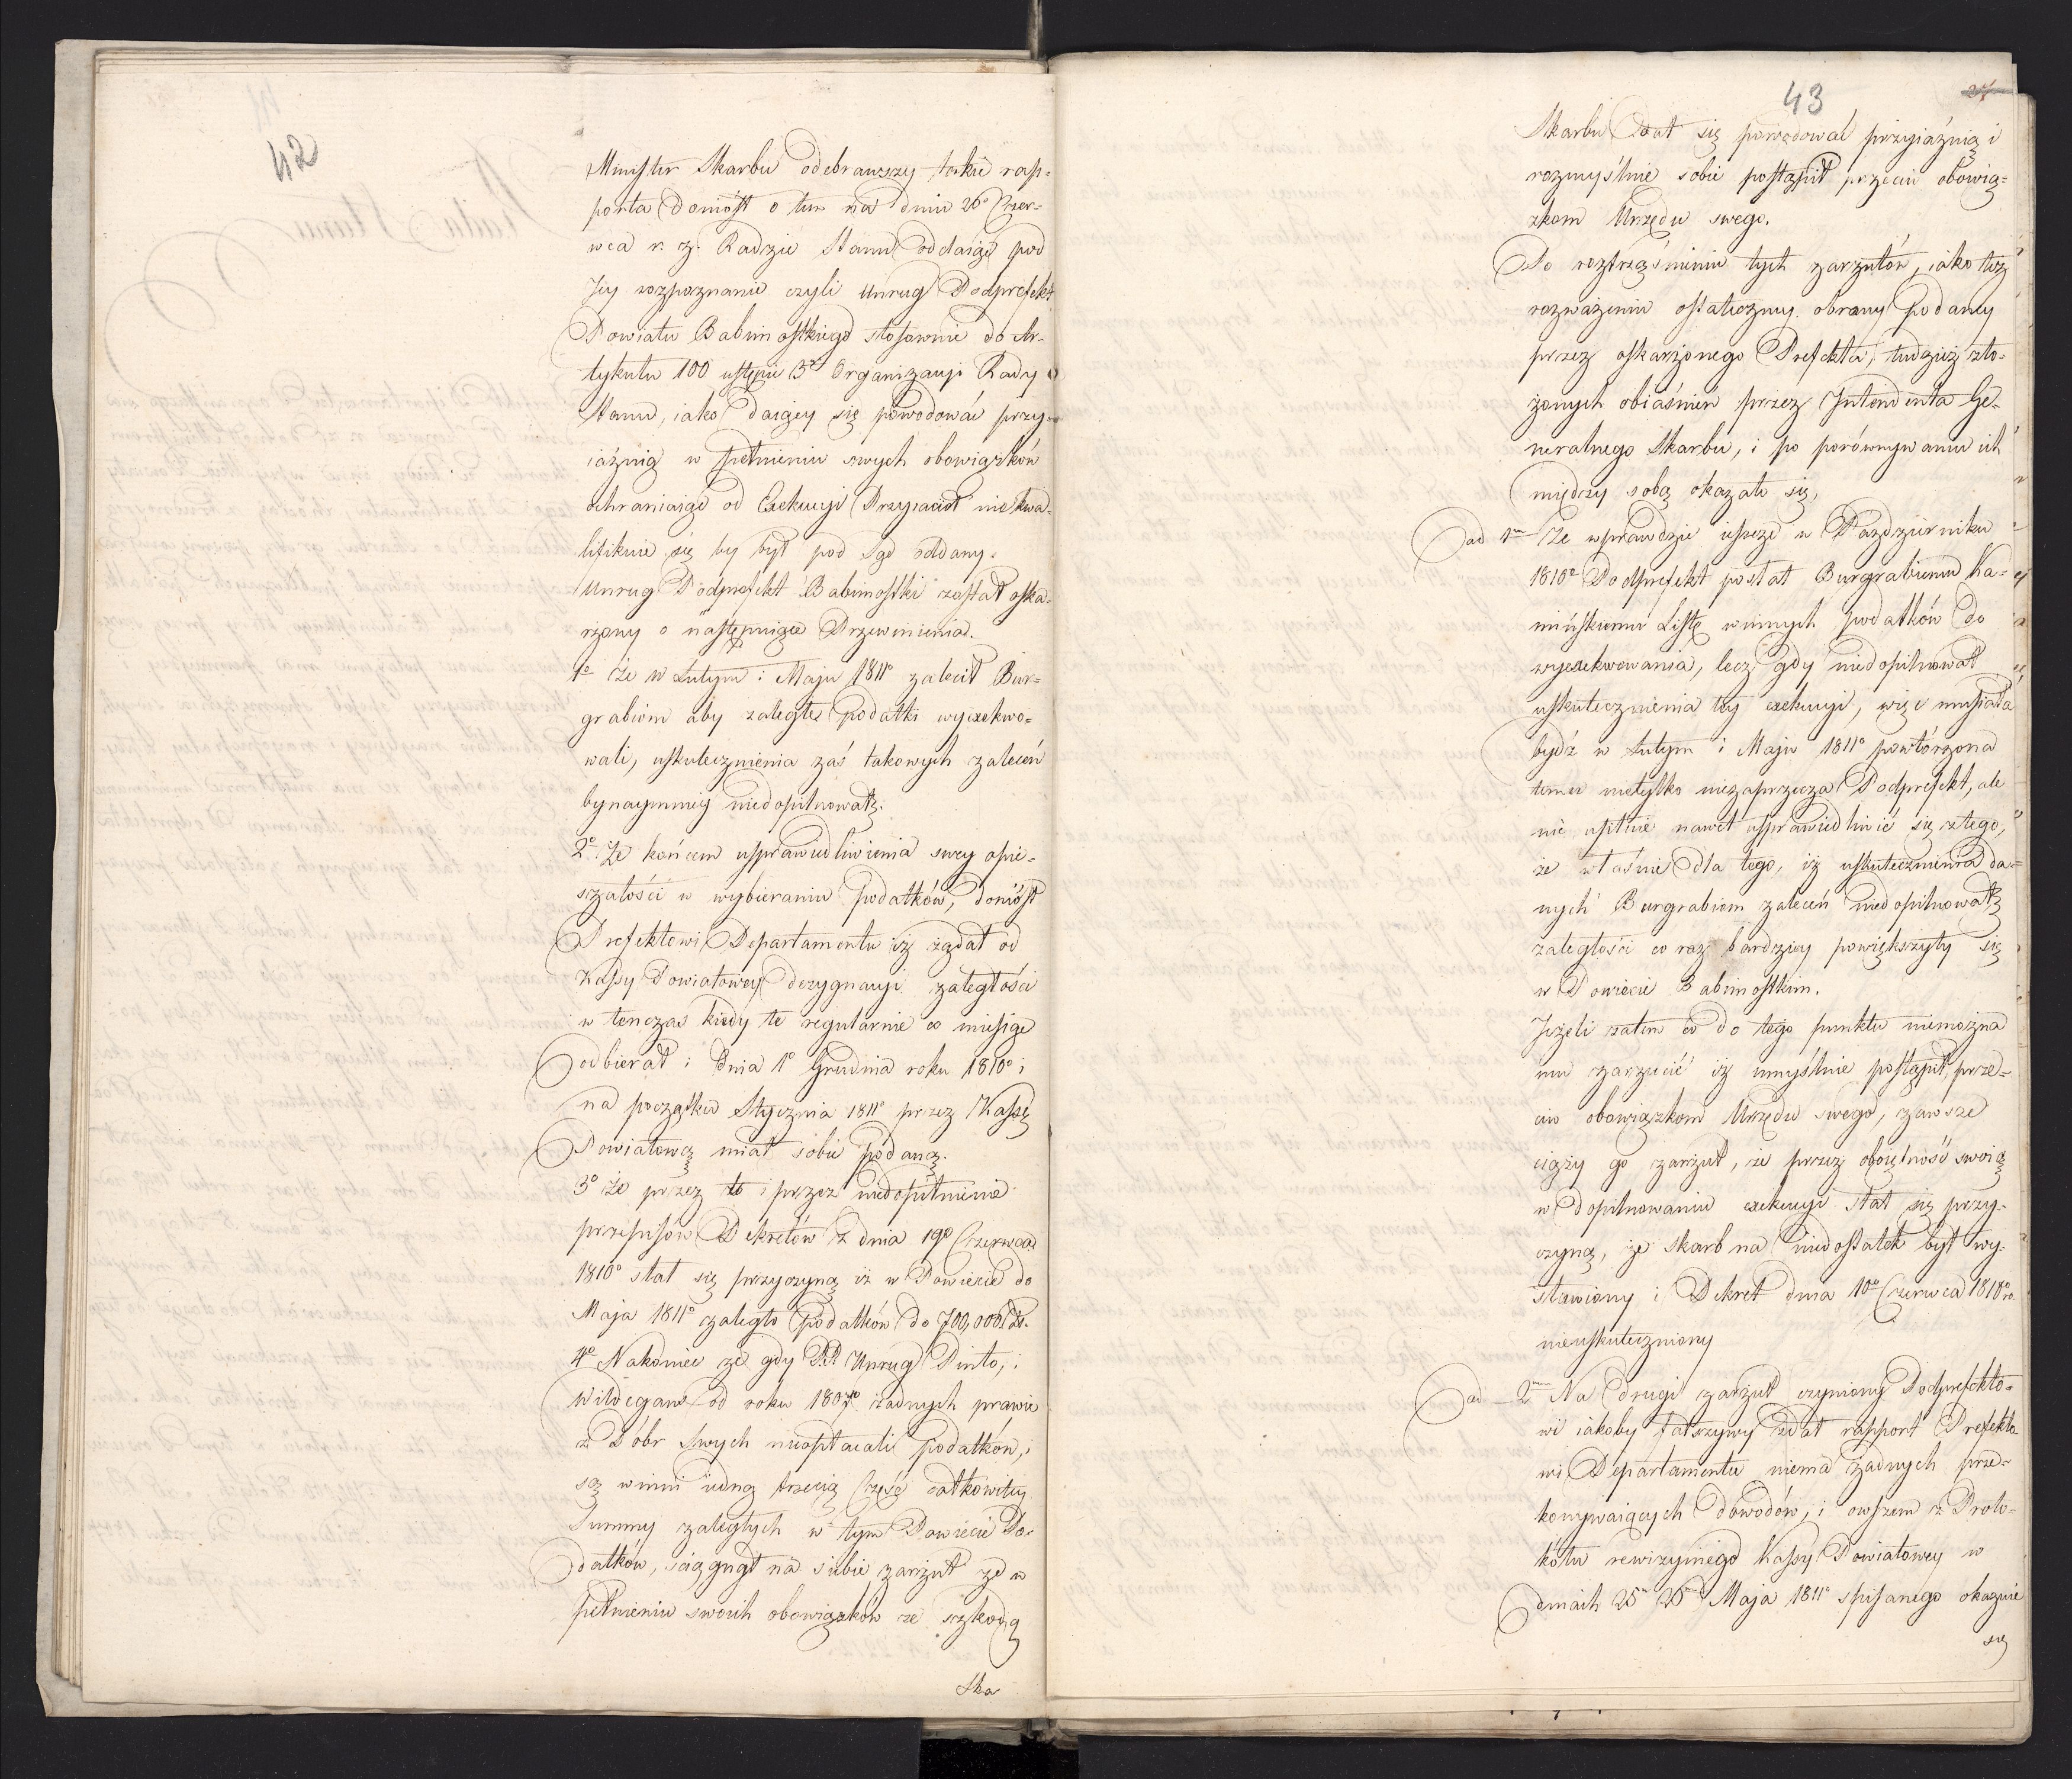 42
Minister Skarbu odebrawszy takie rap-
porta doniósł o tem na dniu 26° Czer-
wca r. z. Radzie Stanu oddaiąc pod
Jey rozpoznanie czyli Unrug Podprefekt
Powiatu Babimostkiego stosownie do Ar-
tykułu 100 ustępu 3° Organizacyi Rady
Stanu, iako daiący się powodować przy-
iaźnią w pełnieniu swych obowiązków
ochraniaiąc od Exekucyi Przyiaciół nie kwa-
lifikuie się by był pod Sąd oddany.
Unrug Podprefekt Babimostki został oska-
rżony o następuiące Przewinienia.
1° Że w Lutym i Maju 1811° zalecił Bur-
grabiom aby zaległe podatki wyexekwo-
wali, uskutecznienia zaś takowych zaleceń
bynaymniey niedopilnował.
2° Że końcem usprawiedliwienia swey opie-
szałości w wybieraniu podatków, doniósł
Prefektowi Departamentu iż żądał od
Kassy Powiatowey dezygnacyi zaległości
w tenczas kiedy te regularnie co miesiąc
odbierał i Dnia 1° Grudnia roku 1810° i
na początku Stycznia 1811° przez Kassę
Powiatową miał sobie podaną.
3° Że przez to i przez niedopełnienie
przepisów Dekretów z dnia 19° Czerwca
1810° stał się przyczyną iż w Powiecie do
Maja 1811° zaległo podatków do 700,000 Zł.
4° Nakoniec że gdy PP. Unrug Pinto, i
Wildegans od roku 1807° żadnych prawie
z Dóbr Swych nieopłacali podatków, i
są winni iedną trzecią Część całkowitey
Summy zaległych w tym Powiecie Po-
datków, ściągnął na siebie zarzut że w
pełnieniu swoich obowiązków ze szkodą
Ska
43
Skarbu dał się powodować przyiaźnią i
rozmyślnie sobie postąpił przeciw obowią-
zkom Urzędu swego.
Po roztrząśnieniu tych zarzutów, iako też
rozważeniu ostateczney obrony podaney
przez oskarżonego Prefekta, tudzież zło-
żonych obiaśnień przez Intendenta Ge-
neralnego Skarbu, i po porównywaniu ich
między sobą okazało się,
ad 1m Że wprawdzie ieszcze w Pazdzierniku
1810° Podprefekt posłał Burgrabiemu Ka-
mińskiemu Listę winnych podatków do
wyexekwowania, lecz gdy niedopilnował
uskutecznienia tey exekucyi, więc musiała
bydź w Lutym i Maju 1811° powtórzona
temu nietylko niezaprzecza Podprefekt, ale
nie usiłuie nawet usprawiedliwić się z tego,
że właśnie dla tego, iż uskutecznienia da-
nych Burgrabiom zaleceń niedopilnował
zaległości co raz bardziey powiększyły się
w Powiecie Babimostkim.
Jeżeli zatem co do tego punktu niemożna
mu zarzucić iż umyślnie postąpił prze-
ciw obowiązkom Urzędu swego, zawsze
ciąży go zarzut, że przez oboiętność swoią
w dopilnowaniu exekucyi stał się przy-
czyną, że skarb na niedostatek był wy-
stawiony i Dekret dnia 19° Czerwca 1810° ro.
nieuskuteczniony
ad 2m Na drugi zarzut czyniony Podprefekto-
wi iakoby fałszywy zdał rapport Prefekto
wi Departamentu niema żadnych prze-
konywaiących dowodów, i owszem z Proto-
kółu rewizyinego Kassy Powiatowey w
dniach 25m 26m Maja 1811° spisanego okazuie
się